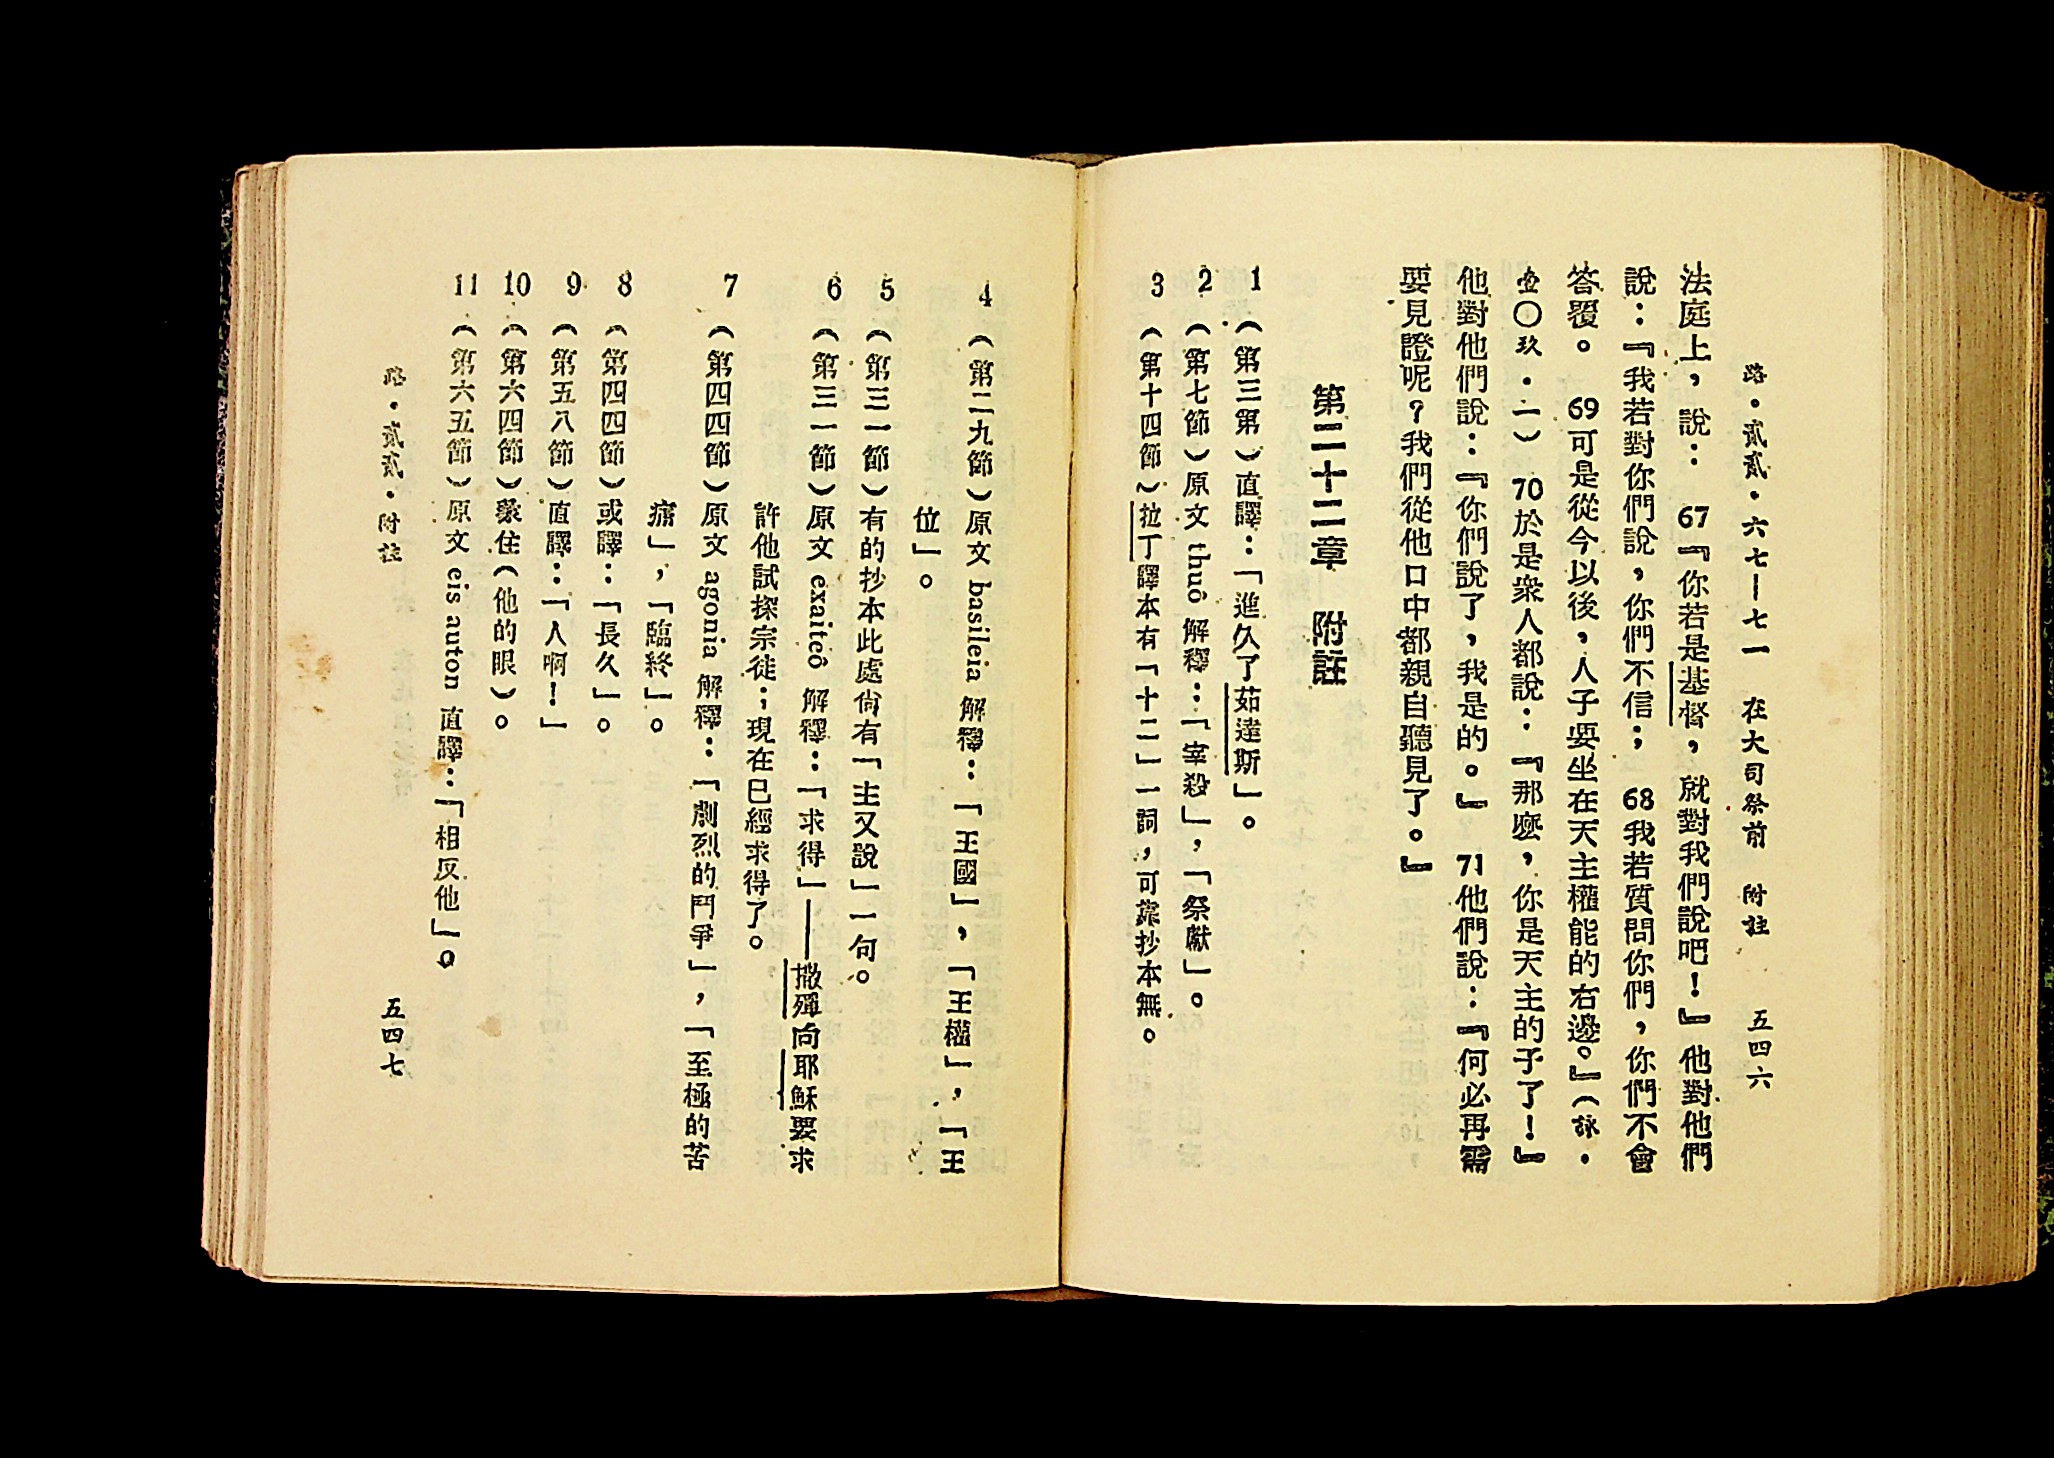 路・貳貳・六七—七一　在大司祭前　附註　五四六
法庭上，說：67『你若是基督，就對我們說吧！』他對他們
說：『我若對你們說，你們不信；68我若質問你們，你們不會
答覆。69可是從今以後，人子要坐在天主權能的右邊。』（詠・
壹〇玖・一）70於是衆人都說：『那麼，你是天主的子了！』
他對他們說：『你們說了，我是的。』71他們說：『何必再需
要見證呢？我們從他口中都親自聽見了。』
第二十二章　附註
1（第三第）直譯：「進久了茹達斯」。
2（第七節）原文 thuô 解釋：「宰殺」，「祭獻」。
3（第十四節）拉丁譯本有「十二」一詞，可靠抄本無。
4（第二九節）原文 basileia 解釋：「王國」，「王權」，「王
位」。
5（第三一節）有的抄本此處尙有「主又說」一句。
6（第三一節）原文 exaiteô 解釋：「求得」——撒殫向耶穌要求
許他試探宗徒；現在已經求得了。
7（第四四節）原文 agonia 解釋：「劇烈的鬥爭」，「至極的苦
痛」，「臨終」。
8（第四四節）或譯：「長久」。
9（第五八節）直譯：「人啊！」
10（第六四節）蒙住（他的眼）。
11（第六五節）原文 eis auton 直譯：「相反他」。
路・貳貳・附註　五四七